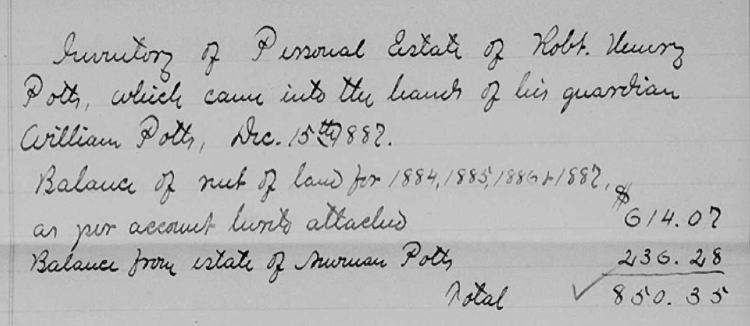 Inventory of Personal Estate of Robt. Henry
Potts, which came into the hands of his guardian
William Potts, Dec. 15th 1887.
Balance of rent of land for 1884, 1885, 1886 & 1887,
as per account hereto attached $614.07
Balance from estate of Potts 236.28
Total ✓ 850.35